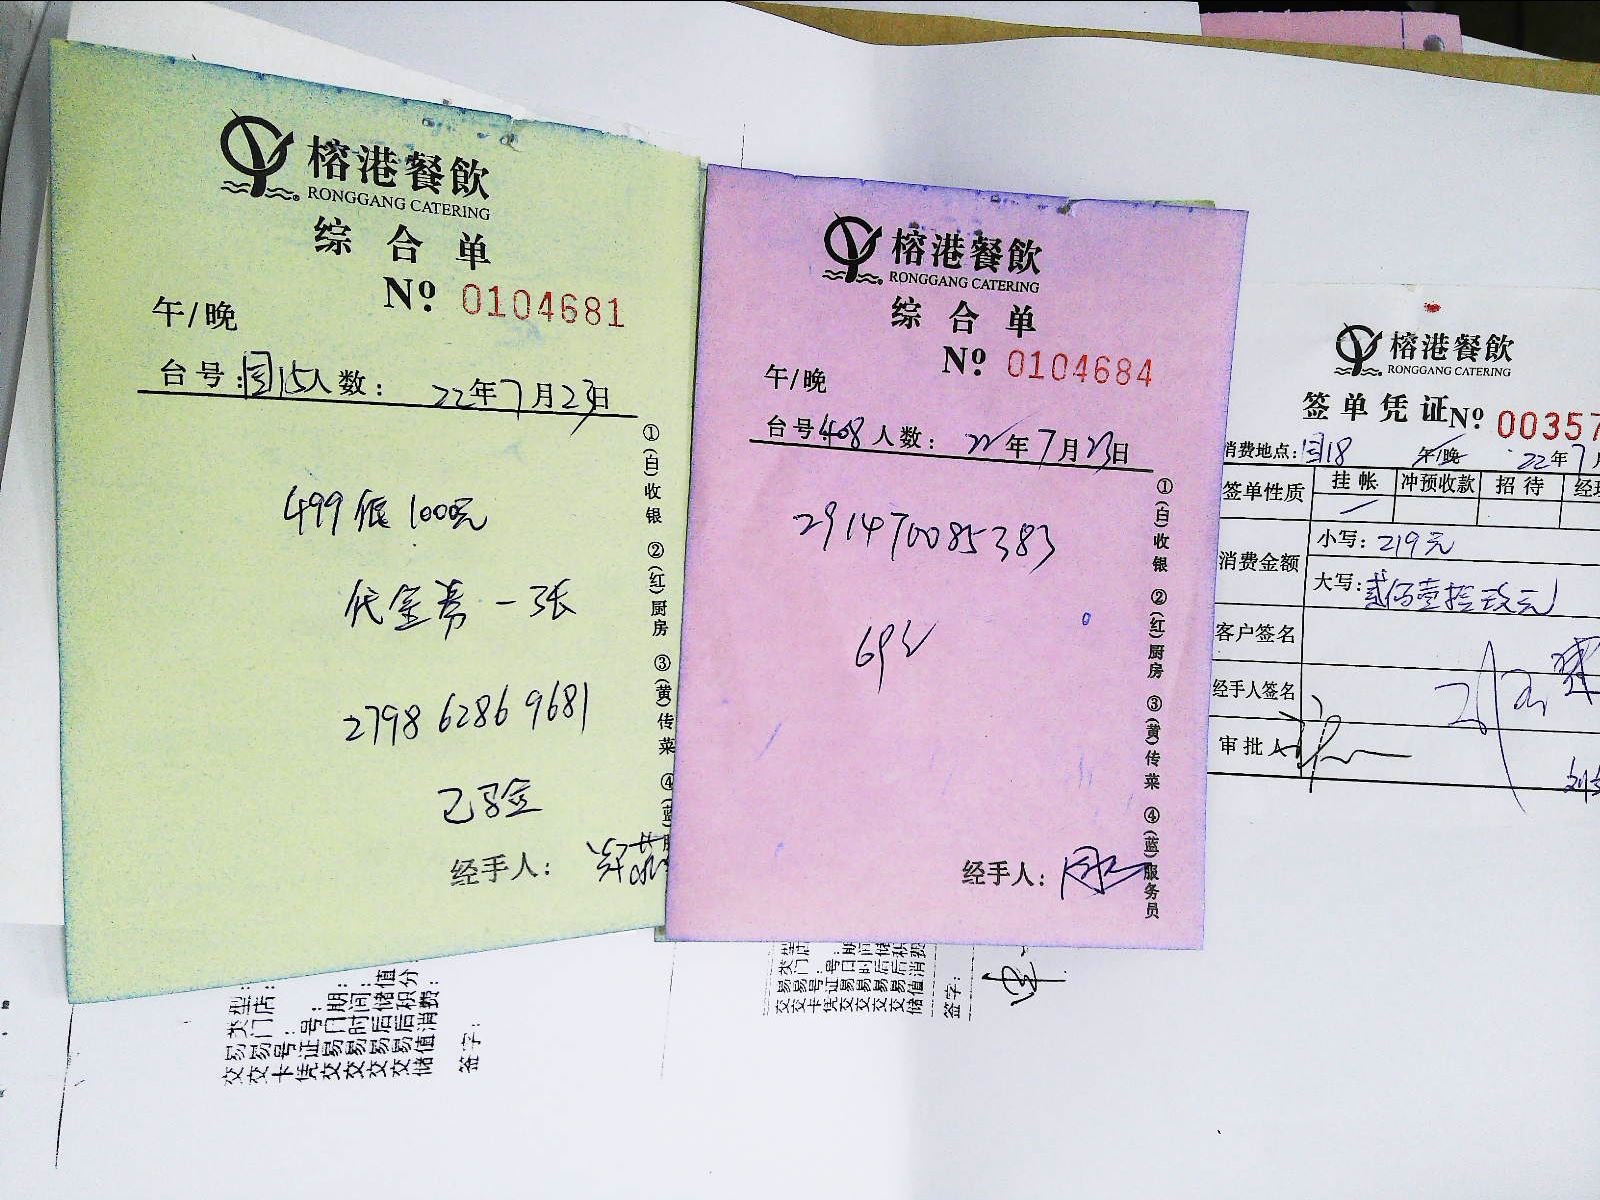 榕港餐飲
RONGGANG CATERING
综合单
No 0104681
午/晚
台号:自15人数: 22年7月23日
499低1000元
代金券一张
279862869681
已验
经手人:
①(白)收银 ②(红)厨房 ③(黄)传菜 ④(蓝)
榕港餐飲
RONGGANG CATERING
综合单
No 0104684
午/晚
台号408人数: 22年7月23日
291470085383
69元
经手人:
①(白)收银 ②(红)厨房 ③(黄)传菜 ④(蓝)服务员
榕港餐飲
RONGGANG CATERING
签单凭证No 00357
消费地点:自18 午/晚 22年7月
签单性质 挂帐 冲预收款 招待
消费金额 小写:219元
大写:贰佰壹拾玖元
客户签名
经手人签名
审批人
交易类型:
交易门店:
卡号:
凭证号:
交易日期:
交易时间:
交易后储值
交易后积分
储值消费:
签字:
交易类型
交易门店
卡号:
凭证号:
交易日期
交易时间
交易后储
交易后积
储值消费
签字: